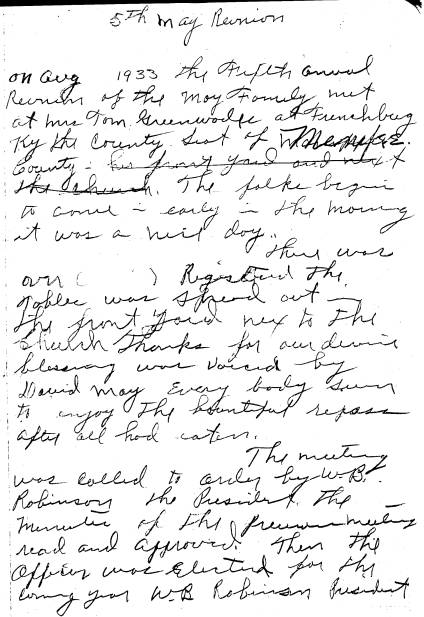 5th May Reunion
on Aug 1933 the Fifth anual
Reunion of the May Family met
at Mrs Tom Greenwades at Frenchburg
Ky the County Seat of Menifee
County - his front yard and next
the church. The folks begin
to come in early in the morning
it was a nice day.
There was
over ( ) Registered the
Tables was spread out in
the front yard nex to the
Church Thanks for our devine
blessing was voiced by
David May Every body seem
to enjoy the bountiful repass
after all had eaten.
The meeting
was called to order by W.B.
Robinson the President. The
Minutes of the previous meeting
read and approved. Then the
Officers was Elected for the
coming year W.B Robinson President